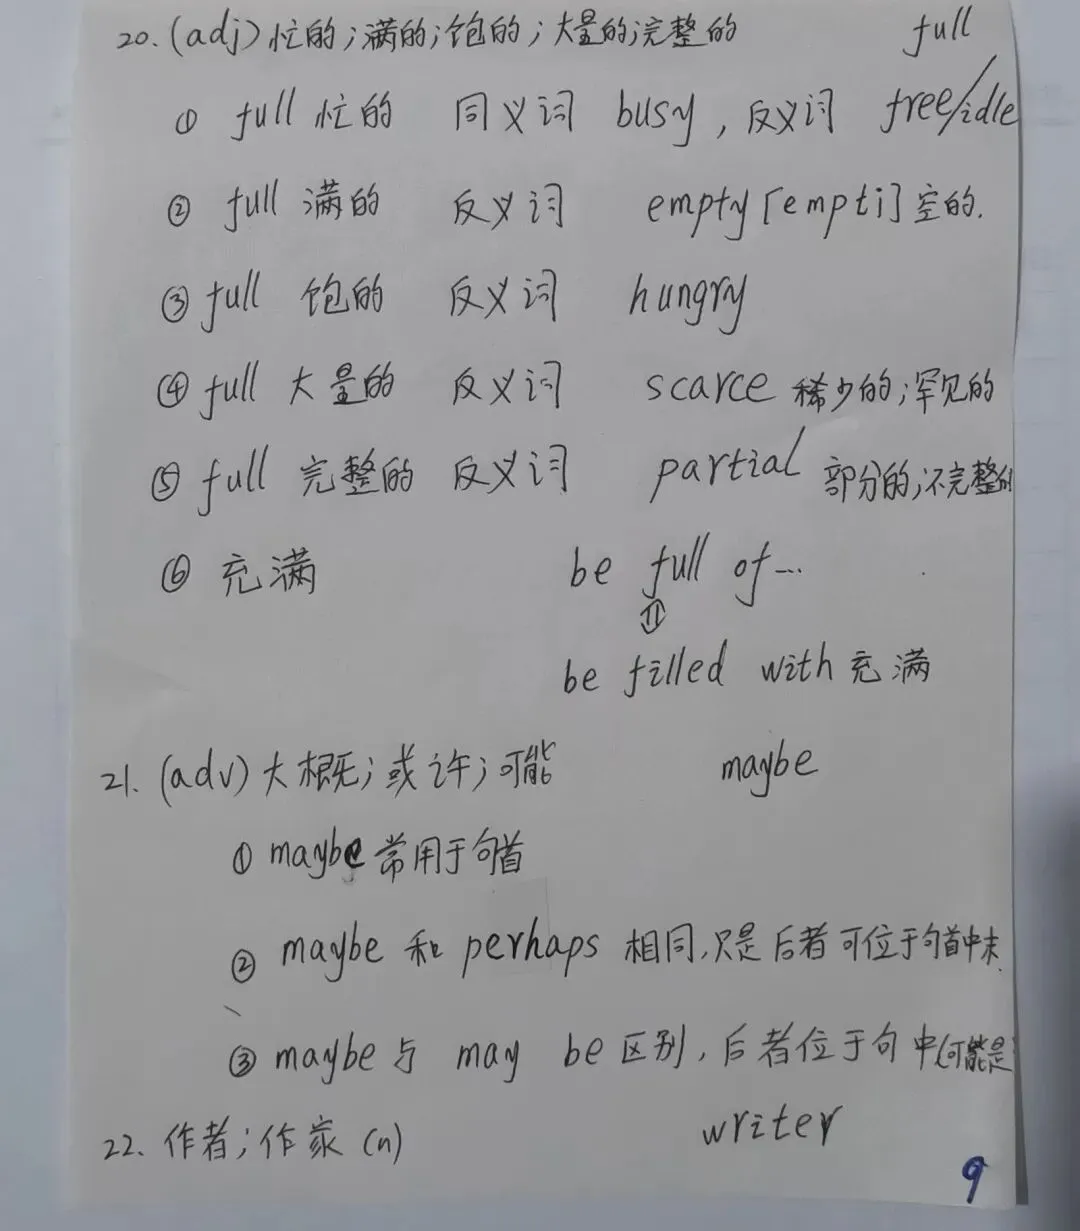 20. (adj) 忙的；满的；饱的；大量的；完整的 full
① full 忙的 同义词 busy，反义词 free/idle
② full 满的 反义词 empty [empti] 空的.
③ full 饱的 反义词 hungry
④ full 大量的 反义词 scarce 稀少的；罕见的
⑤ full 完整的 反义词 partial 部分的；不完整的
⑥ 充满 be full of...
be filled with 充满
21. (adv) 大概；或许；可能 maybe
① maybe 常用于句首
② maybe 和 perhaps 相同，只是后者可位于句首中末
③ maybe 与 may be 区别，后者位于句中(可能是
22. 作者；作家 (n) writer
9